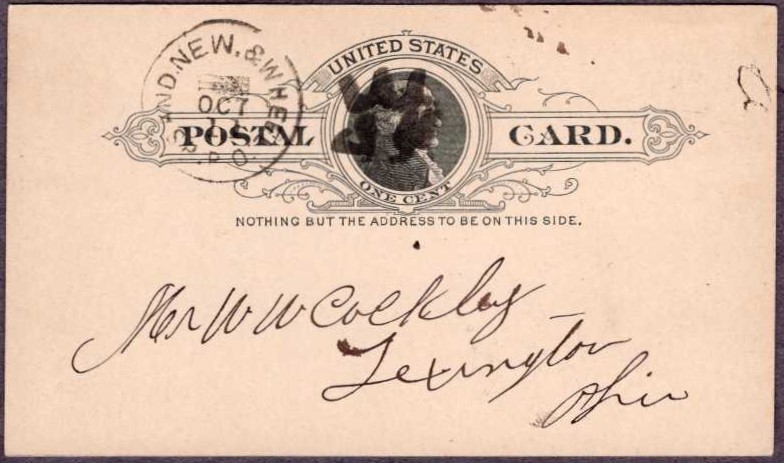 UNITED STATES
POSTAL CARD.
ONE CENT
NOTHING BUT THE ADDRESS TO BE ON THIS SIDE.
AND. NEW. & WHEE
OCT
R.P.O.
Mr W W Cockley
Lexington
Ohio